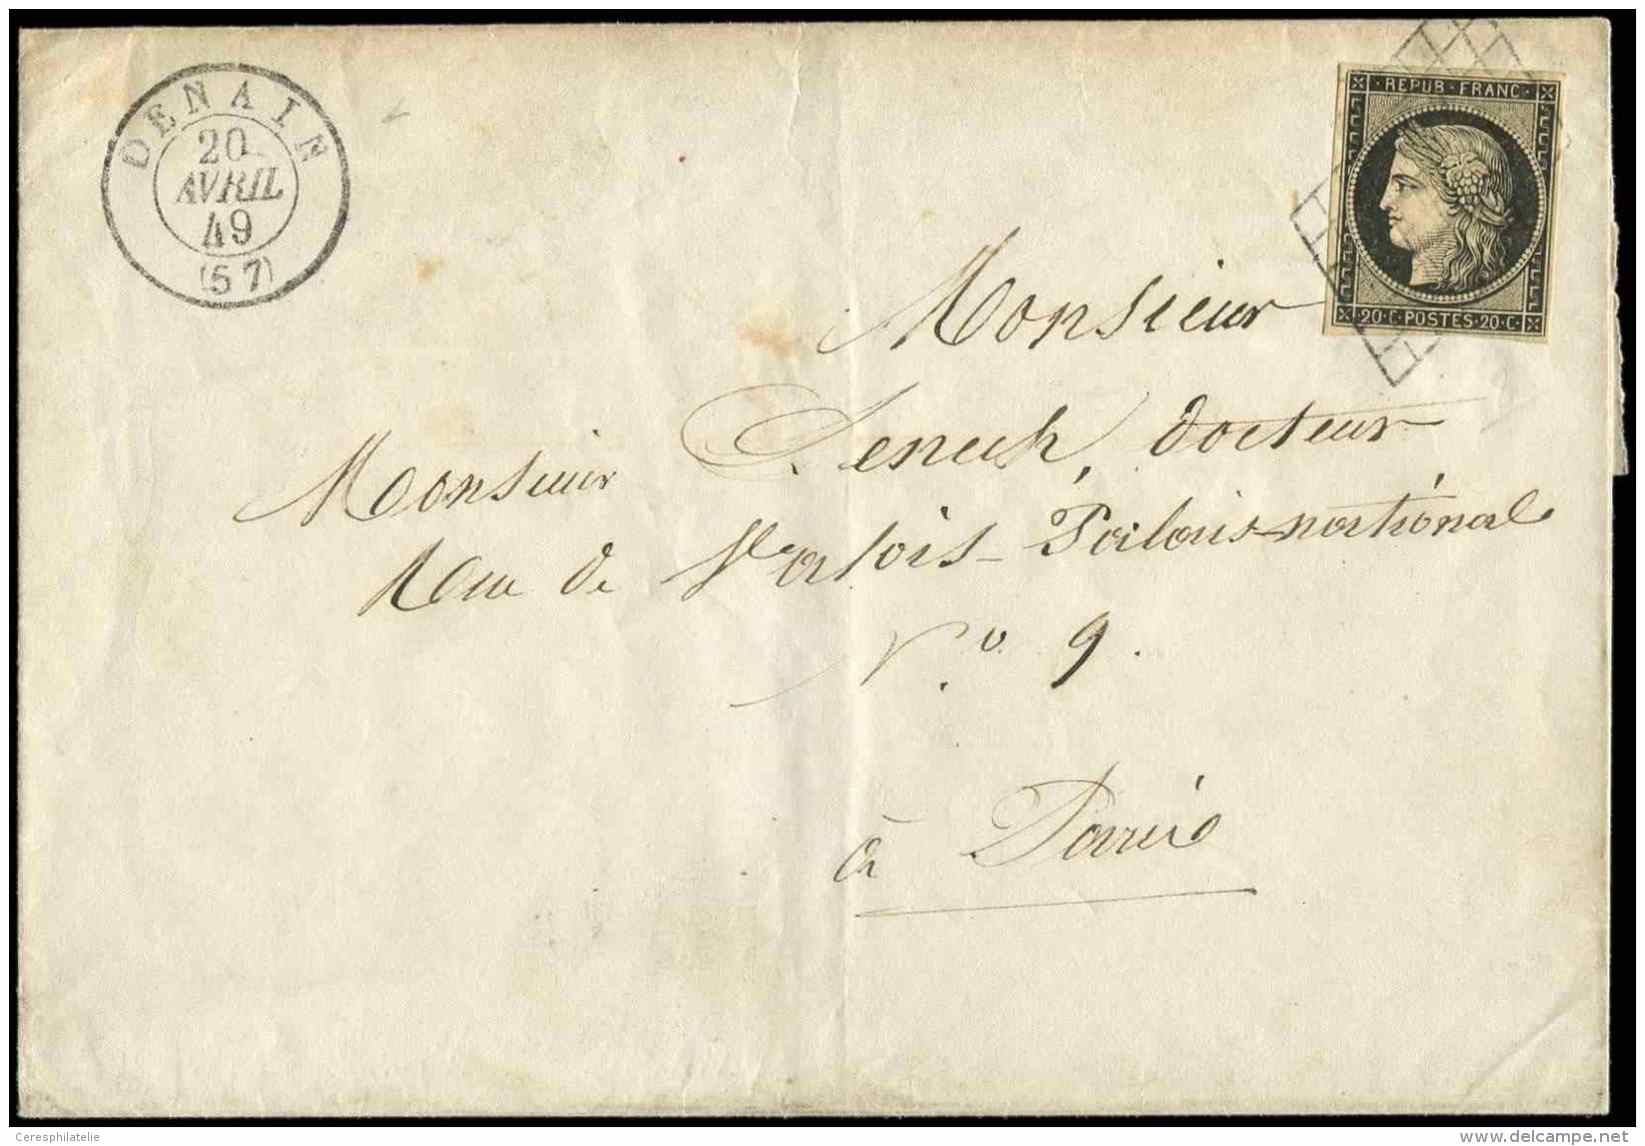 DENAIN
20
AVRIL
49
(57)
REPUB·FRANC·
20·C·POSTES·20·C·
Monsieur
Monsieur docteur
Rue de Valois - Palais-national
N.o 9.
à Paris
Ceresphilatelie
www.delcampe.net